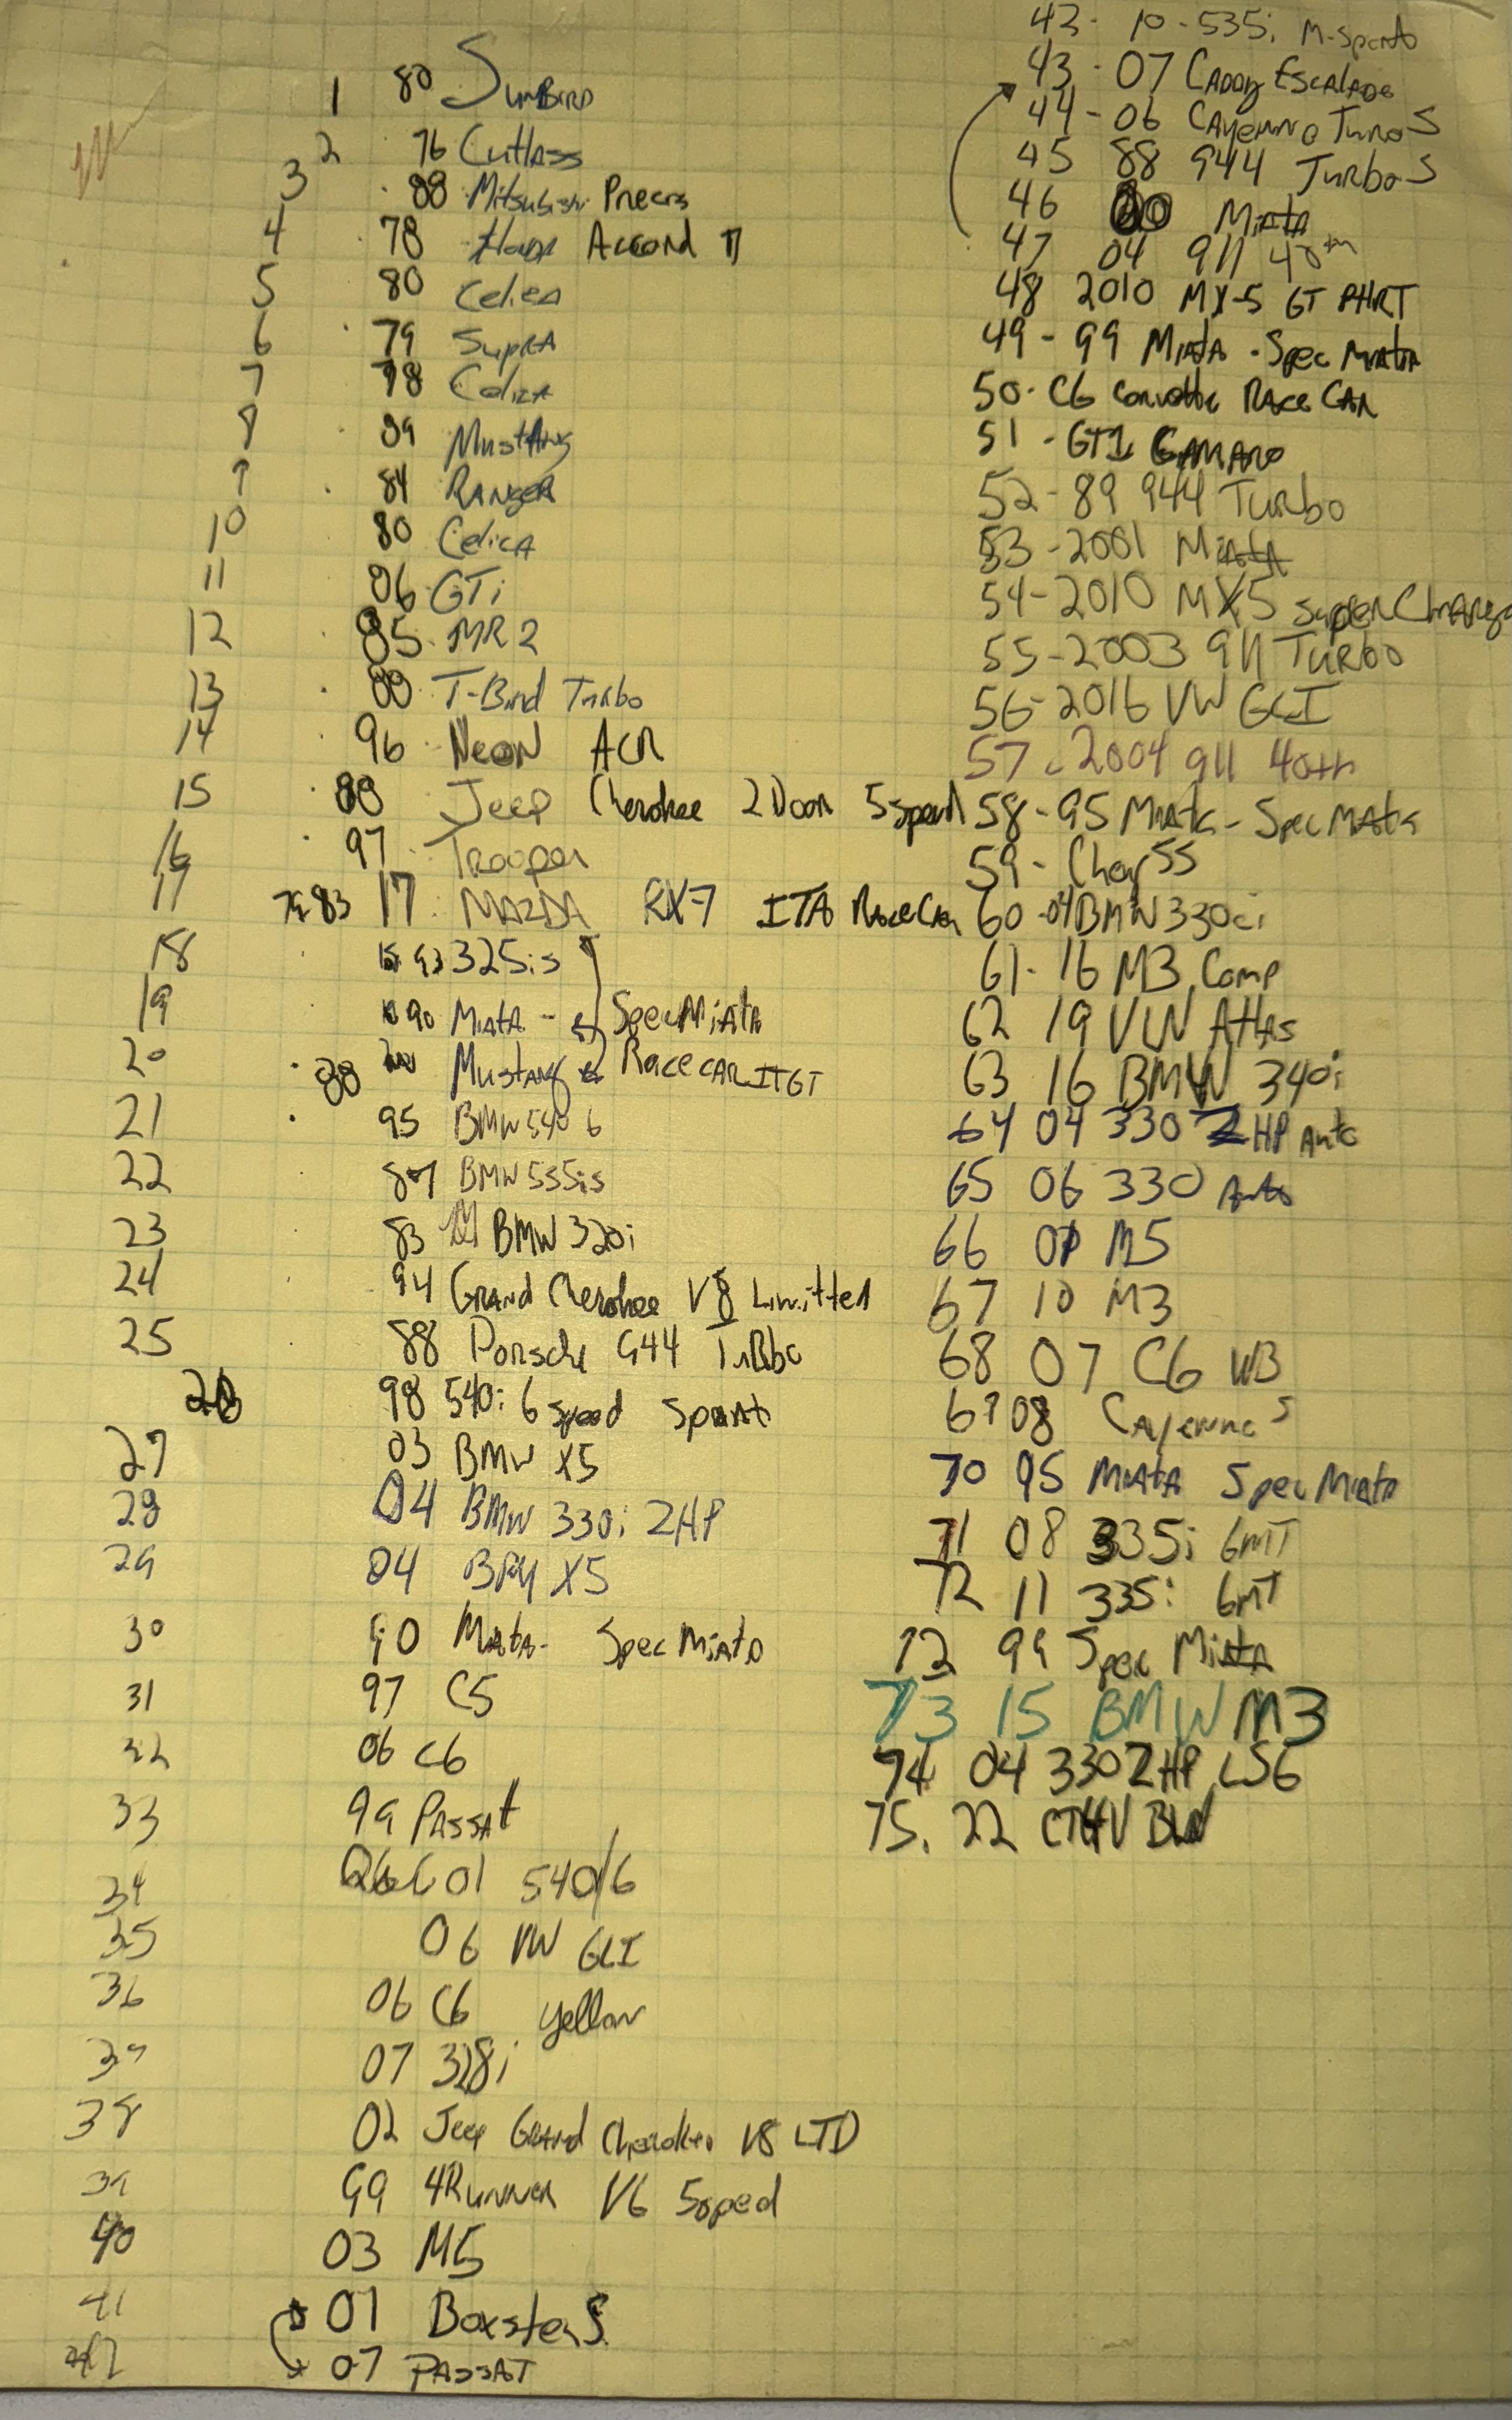 1 80 SunBird
2 76 Cutlass
3 88 Mitsubishi Precis
4 78 Honda Accord
5 80 Celica
6 79 Supra
7 78 Celica
8 89 Mustang
9 84 Ranger
10 80 Celica
11 86 GTi
12 85 MR2
13 88 T-Bird Turbo
14 96 Neon ACR
15 88 Jeep Cherokee 2 Door 5 speed
16 97 Trooper
17 79 83 17 MAZDA RX-7 ITA Race Car
18 93 325is
19 90 Miata - Spec Miata
20 88 Mustang Race car ITGT
21 95 BMW 540 6
22 87 BMW 535is
23 83 BMW 320i
24 94 Grand Cherokee V8 Limitted
25 88 Porsche 944 Turbo
26 98 540i 6 speed Sport
27 03 BMW X5
28 04 BMW 330i ZHP
29 04 X5
30 90 Miata - Spec Miata
31 97 C5
32 06 C6
33 99 Passat
34 01 540/6
35 06 VW GLI
36 06 C6 yellow
37 07 328i
38 02 Jeep Grand Cherokee V8 LTD
39 99 4Runner V6 5sped
40 03 M5
41 01 Boxster S
42 07 PASSAT
42- 10-535i M-Sport
43-07 Caddy Escalade
44-06 Cayenne Turbo S
45 88 944 Turbo S
46 Miata
47 04 911 40th
48 2010 MX-5 GT PHRT
49-99 Miata - Spec Miata
50- C6 Corvette Race Car
51 - GT1 Camaro
52-89 944 Turbo
53-2001 Miata
54-2010 MX5 SuperCharge
55-2003 911 Turbo
56-2016 VW GLI
57-2004 911 40th
58-95 Miata - Spec Miata
59- Chev SS
60-04 BMW 330ci
61-16 M3 Comp
62 19 VW Atlas
63 16 BMW 340i
64 04 330 ZHP Auto
65 06 330 Auto
66 M5
67 10 M3
68 07 C6
69 08 Cayenne S
70 95 Miata Spec Miata
71 08 335i 6MT
72 11 335i 6MT
72 99 Spec Miata
73 15 BMW M3
74 04 330 ZHP LS6
75. 22 CT4V BLW